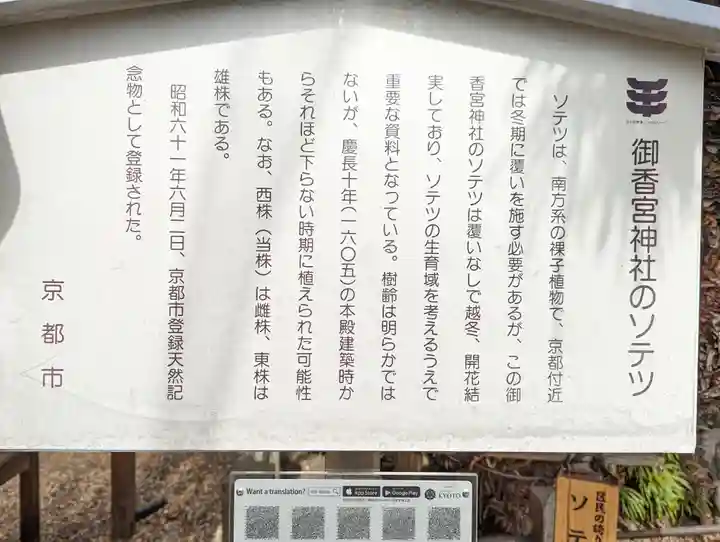 御香宮神社のソテツ
ソテツは、南方系の裸子植物で、京都付近
では冬期に覆いを施す必要があるが、この御
香宮神社のソテツは覆いなしで越冬、開花結
実しており、ソテツの生育域を考えるうえで
重要な資料となつている。樹齢は明らかでは
ないが、慶長十年(一六〇五)の本殿建築時か
らそれほど下らない時期に植えられた可能性
もある。なお、西株（当株）は雌株、東株は
雄株である。
昭和六十一年六月二日、京都市登録天然記
念物として登録された。
京都市
Want a translation?
App Store
Google Play
KYOTO
区民の誇り
ソテ